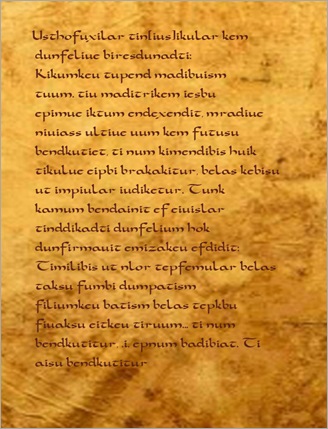 Usthofuxilar tinsiuslikular kem
dunfeliue biresdunadti:
Kikumkeu tupend madibuism
tuum, tiu maditrikem iesbu
epimue iktum endexendit, mradiue
niuiass ultiue uum kem futusu
bendkutiet, ti num kimendibis huik
tikulue eipbi brakakitur, belas kebisu
ut impiular iudiketur. Tunk
kamum bendainit ef eiuislar
tinddikadti dunfelium hok
dunfirmauit emizakeu efdidit:
Timilibis ut nlor tepfemular belas
taksu fumbi dumpatism
filiumkeu batism belas tepkbu
fiuaksu eitkeu tiruum... ti num
bendkutitur .i. epnum badibiat. Ti
aisu bendkutitur